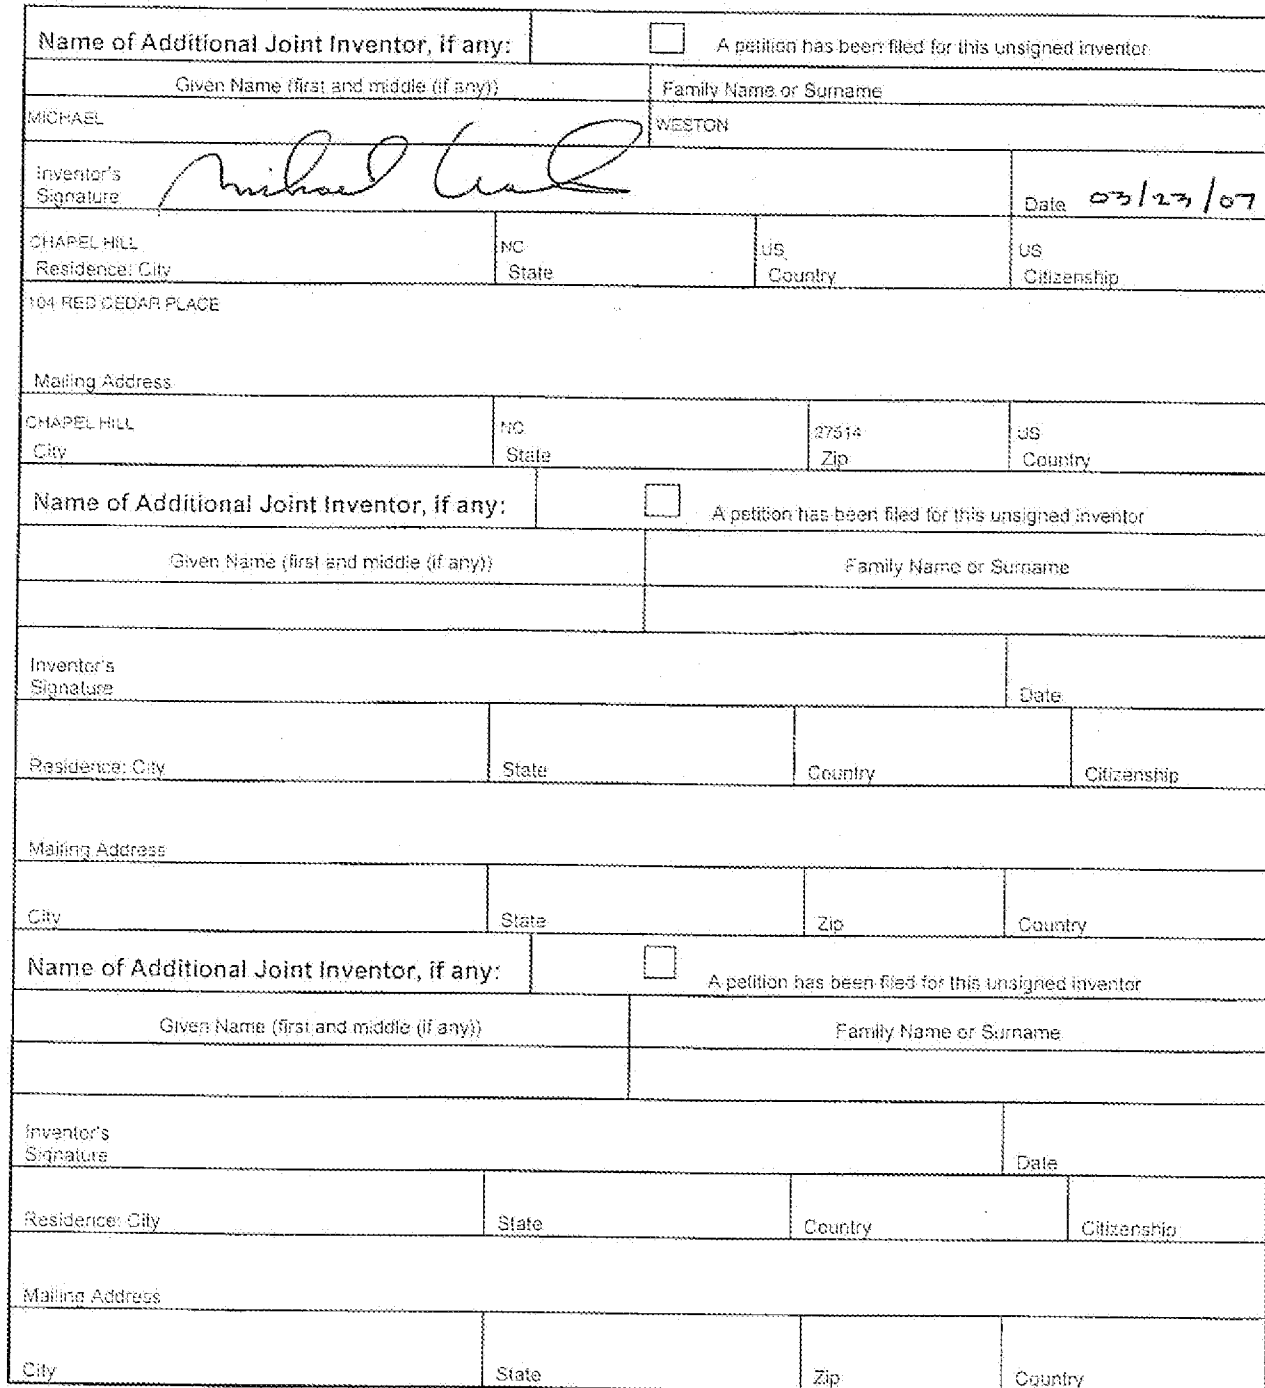 Name of Additional Joint Inventor, if any: A petition has been filed for this unsigned inventor
Given Name (first and middle (if any)) Family Name or Surname
MICHAEL WESTON
Inventor's
Signature Michael Date 03/23/07
CHAPEL HILL NC US US
Residence: City State Country Citizenship
104 RED CEDAR PLACE
Mailing Address
CHAPEL HILL NC 27514 US
City State Zip Country
Name of Additional Joint Inventor, if any: A petition has been filed for this unsigned inventor
Given Name (first and middle (if any)) Family Name or Surname
Inventor's
Signature Date
Residence: City State Country Citizenship
Mailing Address
City State Zip Country
Name of Additional Joint Inventor, if any: A petition has been filed for this unsigned inventor
Given Name (first and middle (if any)) Family Name or Surname
Inventor's
Signature Date
Residence: City State Country Citizenship
Mailing Address
City State Zip Country